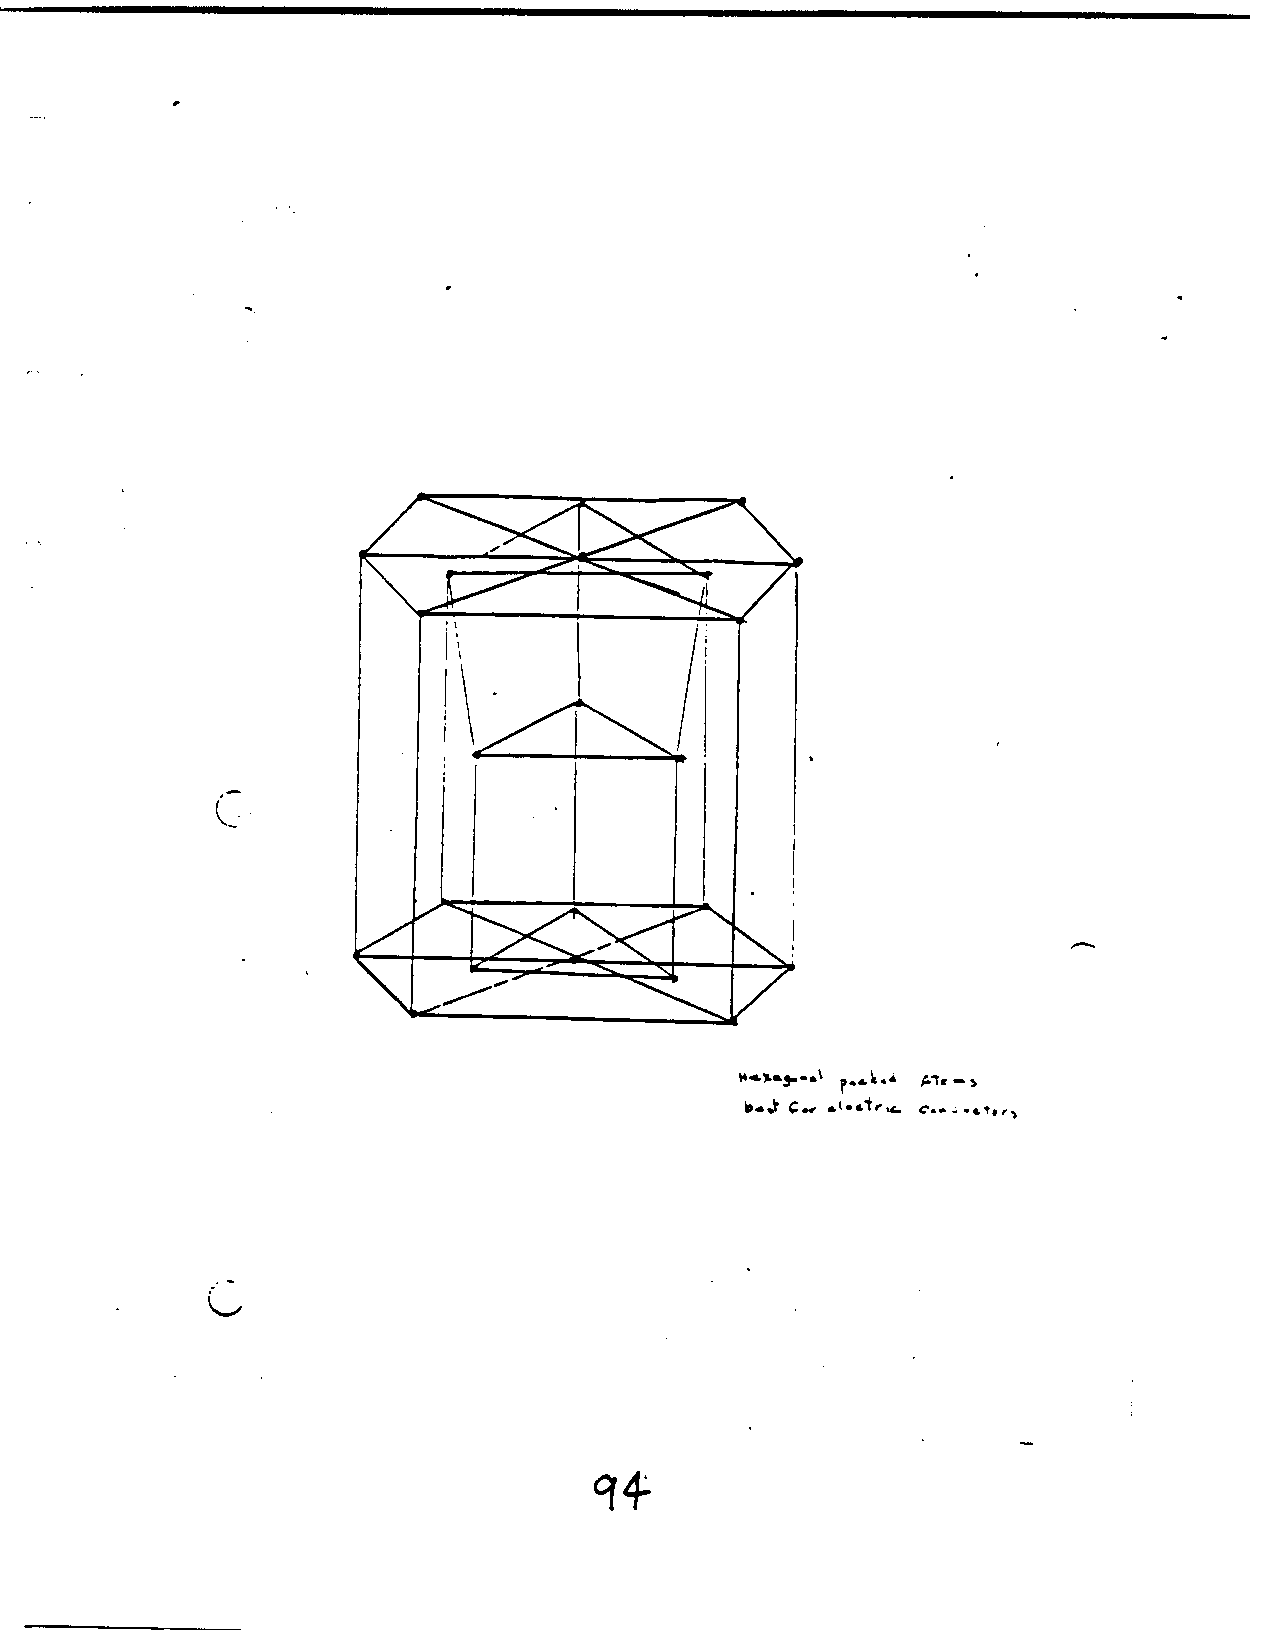 Hexagonal packed atoms
best for electric conductors
94